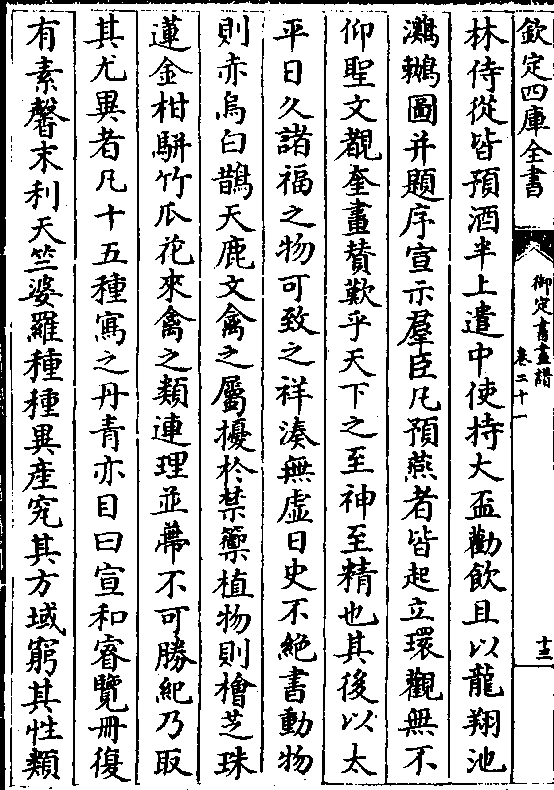 欽定四庫全書
御定書畫譜
卷二十一
十三
林侍從皆預酒半上遣中使持大盃勸飲且以龍翔池
鸂鶒圖并題序宣示羣臣凡預燕者皆起立環觀無不
仰聖文覩奎畫賛歎乎天下之至神至精也其後以太
平日久諸福之物可致之祥湊無虚日史不絶書動物
則赤烏白鵲天鹿文禽之屬擾於禁籞植物則檜芝珠
蓮金柑駢竹瓜花來禽之類連理並蔕不可勝紀乃取
其尤異者凡十五種寫之丹青亦目曰宣和睿覽冊復
有素馨末利天竺婆羅種種異産究其方域窮其性類